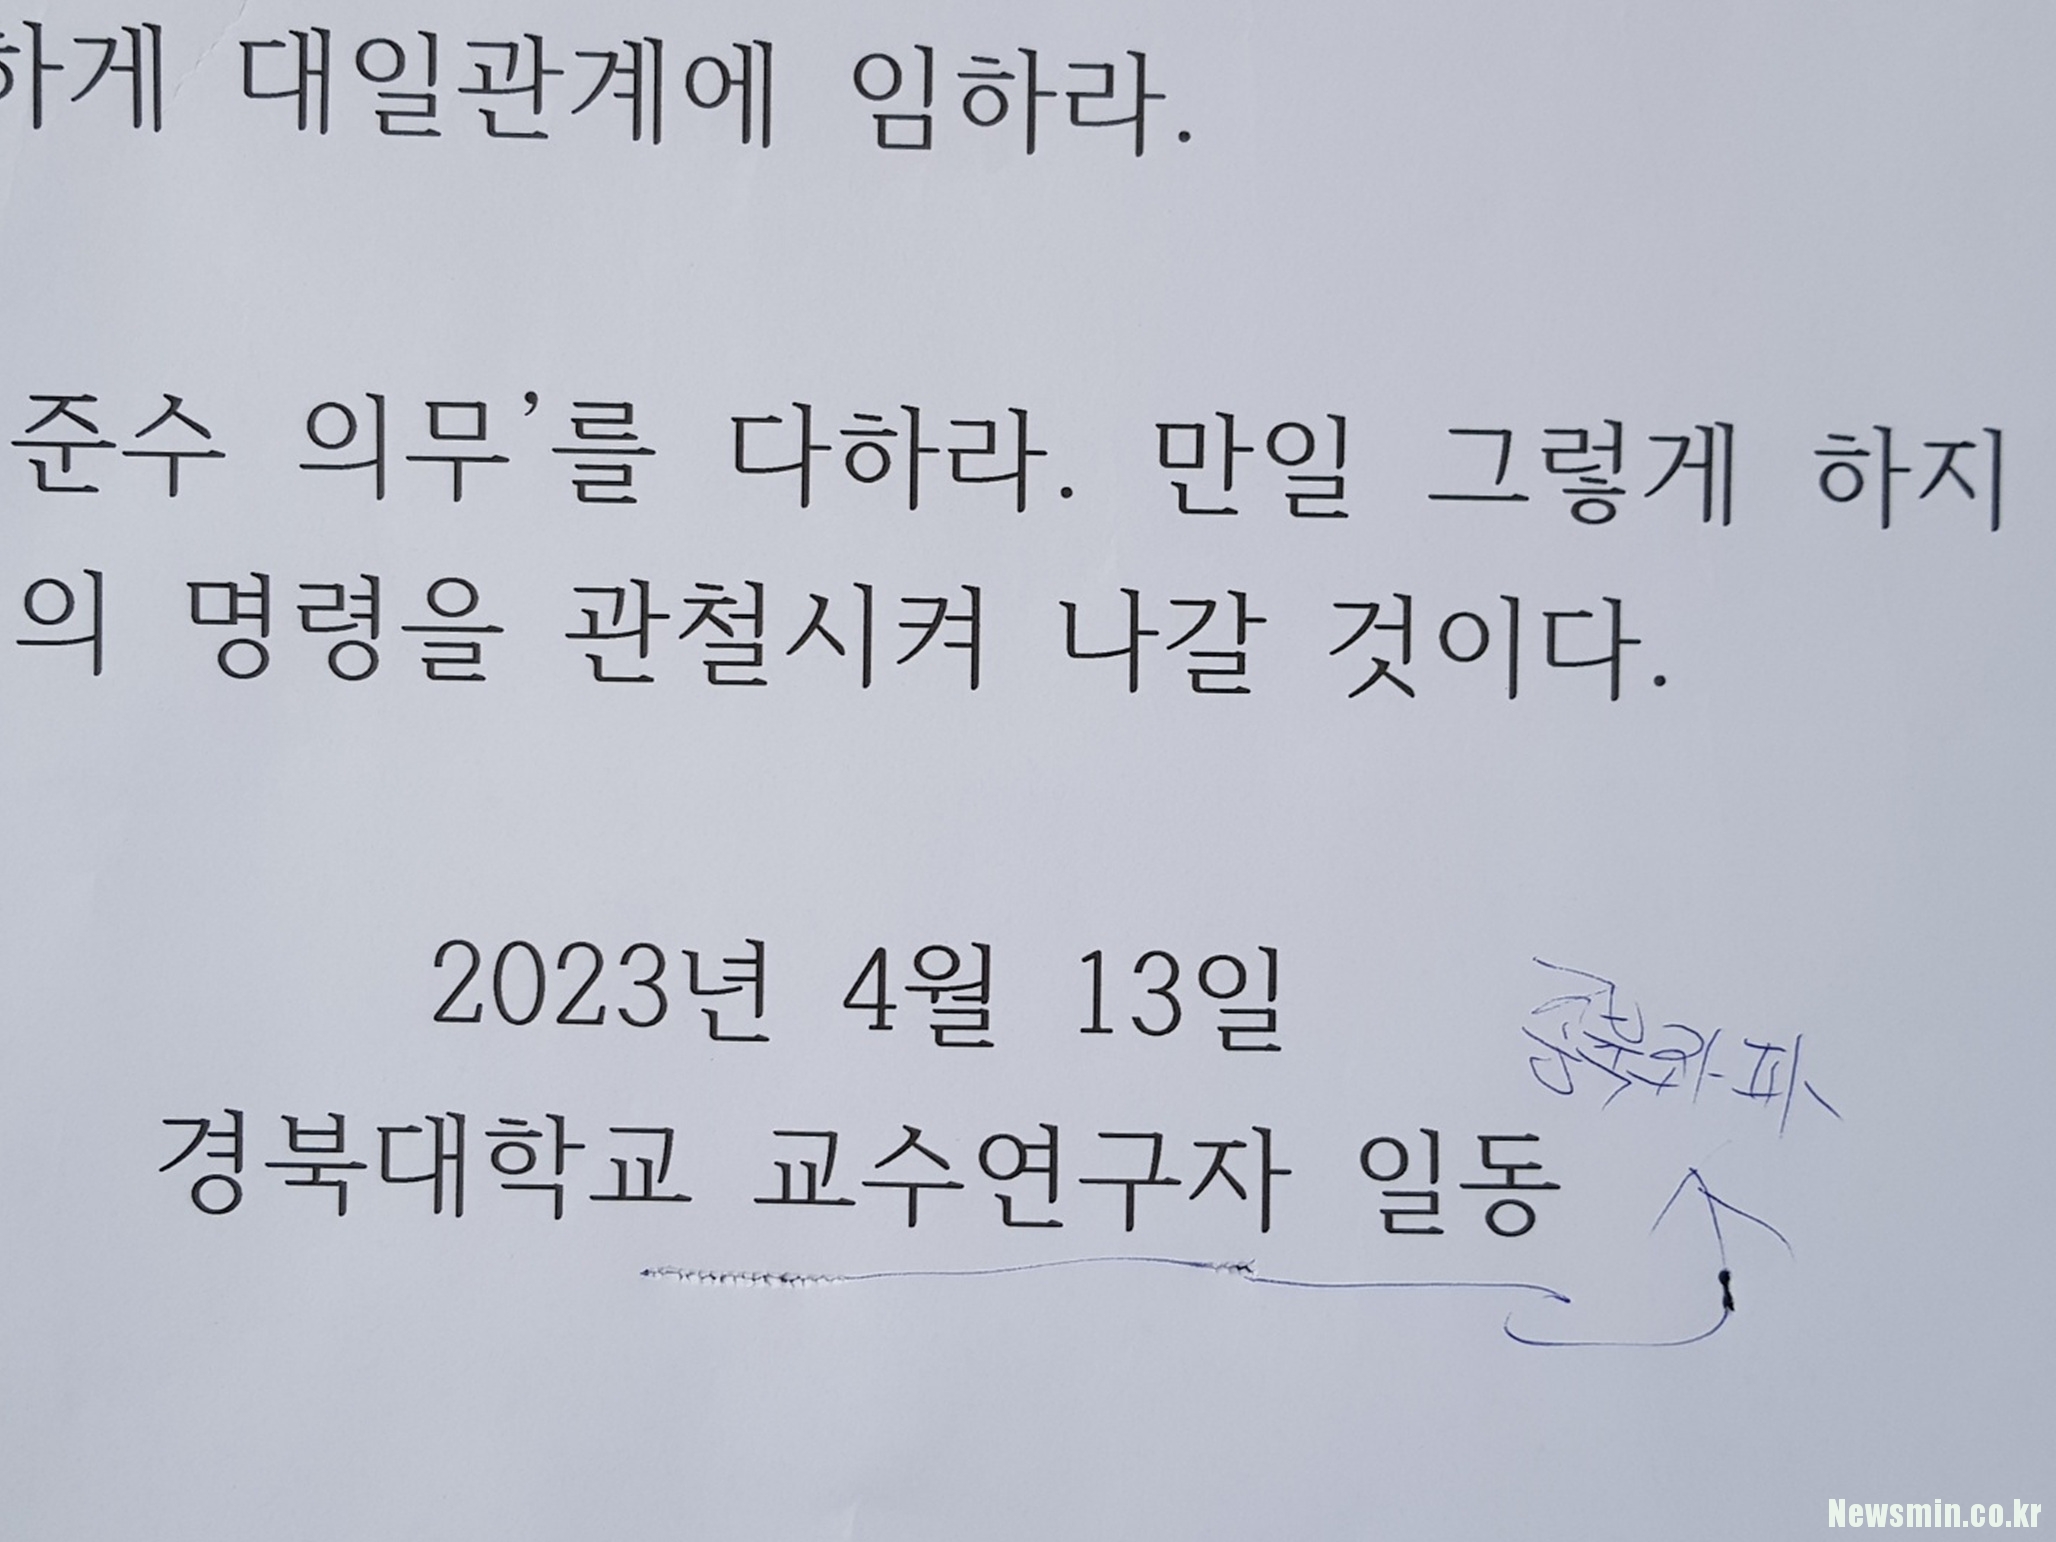 하게 대일관계에 임하라.
준수 의무’를 다하라. 만일 그렇게 하지
의 명령을 관철시켜 나갈 것이다.
2023년 4월 13일
경북대학교 교수연구자 일동
Newsmin.co.kr